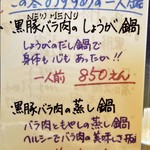 この冬のおすすめの一人鍋
NEW MENU
黒豚バラ肉のしょうが鍋
しょうがのだし鍋で
身体も心もあったか!!
一人前 850えん
黒豚バラ肉の蒸し鍋
バラ肉ともやしの蒸し鍋
ヘルシーでバラ肉の美味しさ